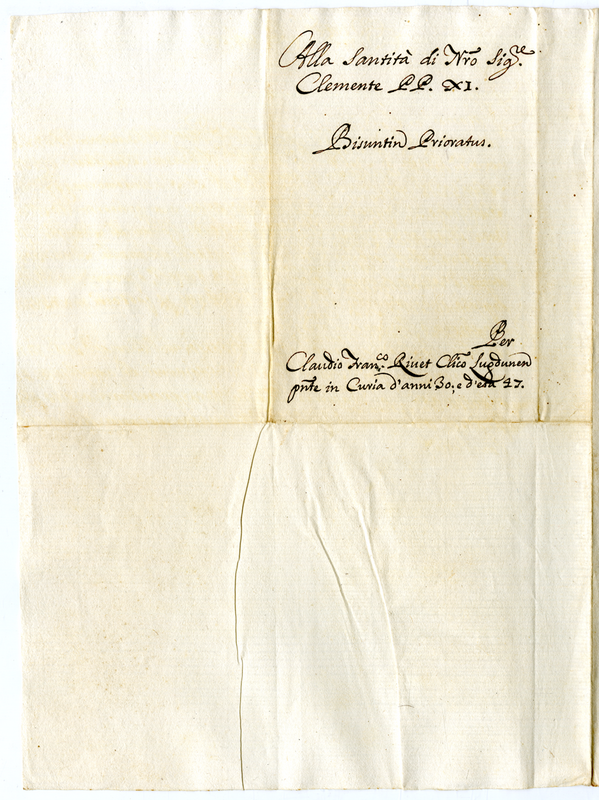 Alla Santità di Nr̃o Sig.re
Clemente PP. XI.
Bisuntin Prioratus.
Per
Claudio Fran.co Rivet Clĩco Lugdunen
pñte in Curia d'anni 30, e d'età 47.